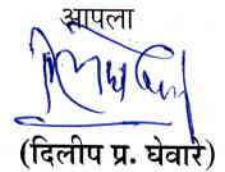 आपला
(दिलीप प्र. घेवारे)